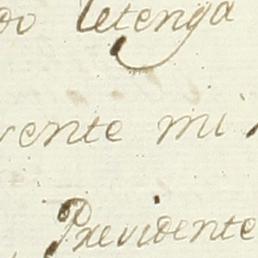 do letenga
vente mi
Previdente